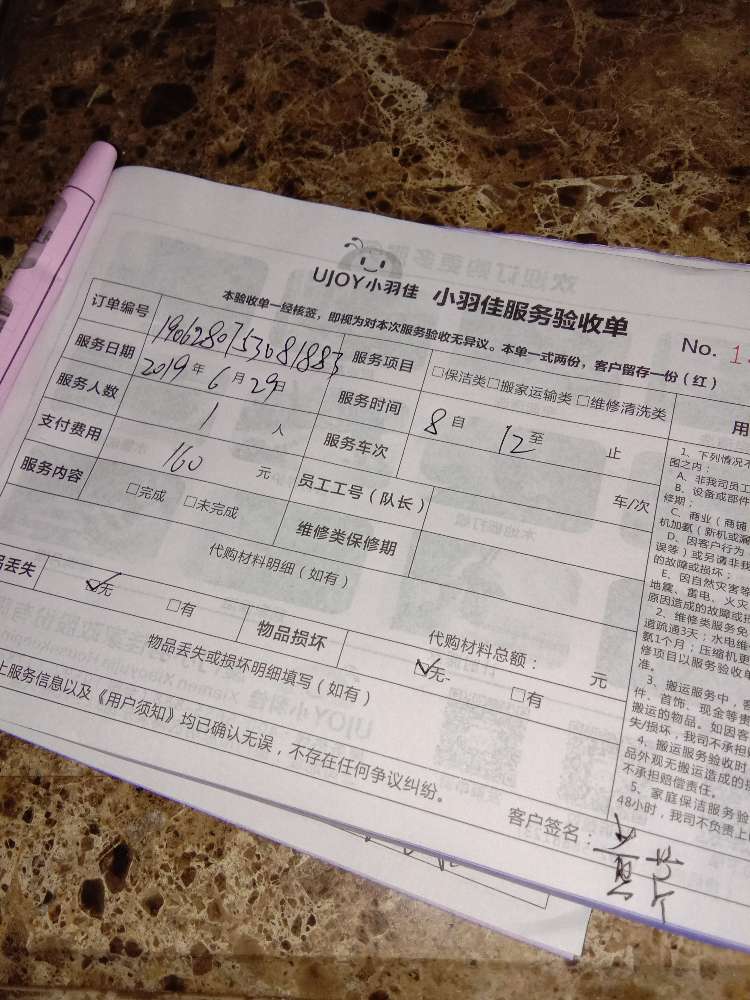 UJOY小羽佳 小羽佳服务验收单
本验收单一经核签，即视为对本次服务验收无异议。本单一式两份，客户留存一份（红）
No. 1
订单编号 190628075308 1883 服务项目 □保洁类□搬家运输类 □维修清洗类
服务日期 2019 年 6 月 29 日 服务时间 8 自 12 至 止
服务人数 1 人 服务车次 车/次
支付费用 160 元 员工工号（队长）
服务内容 □完成 □未完成 维修类保修期
代购材料明细（如有）
代购材料总额： 元
丢失 ☑无 □有 物品损坏 ☑无 □有
物品丢失或损坏明细填写（如有）
上服务信息以及《用户须知》均已确认无误，不存在任何争议纠纷。
客户签名：
用
1、下列情况不
围之内：
A、非我司员工
B、设备或部件
修期；
C、商业（商铺
机加氨（新机或漏
D、因客户行为
误等）或另请非我
的故障或损坏；
E、因自然灾害等
地震、蓄电、火灾
原因造成的故障或损
2、维修类服务免
道疏通3天；水电维
氨1个月；压缩机更
修项目以服务验收单
准。
3、搬运服务中，客
件、首饰、现金等
搬运的物品。如因客
失/损坏，我司不承担
4、搬运服务验收时
品外观无搬运造成的损
不承担赔偿责任。
5、家庭保洁服务验
48小时，我司不负责上